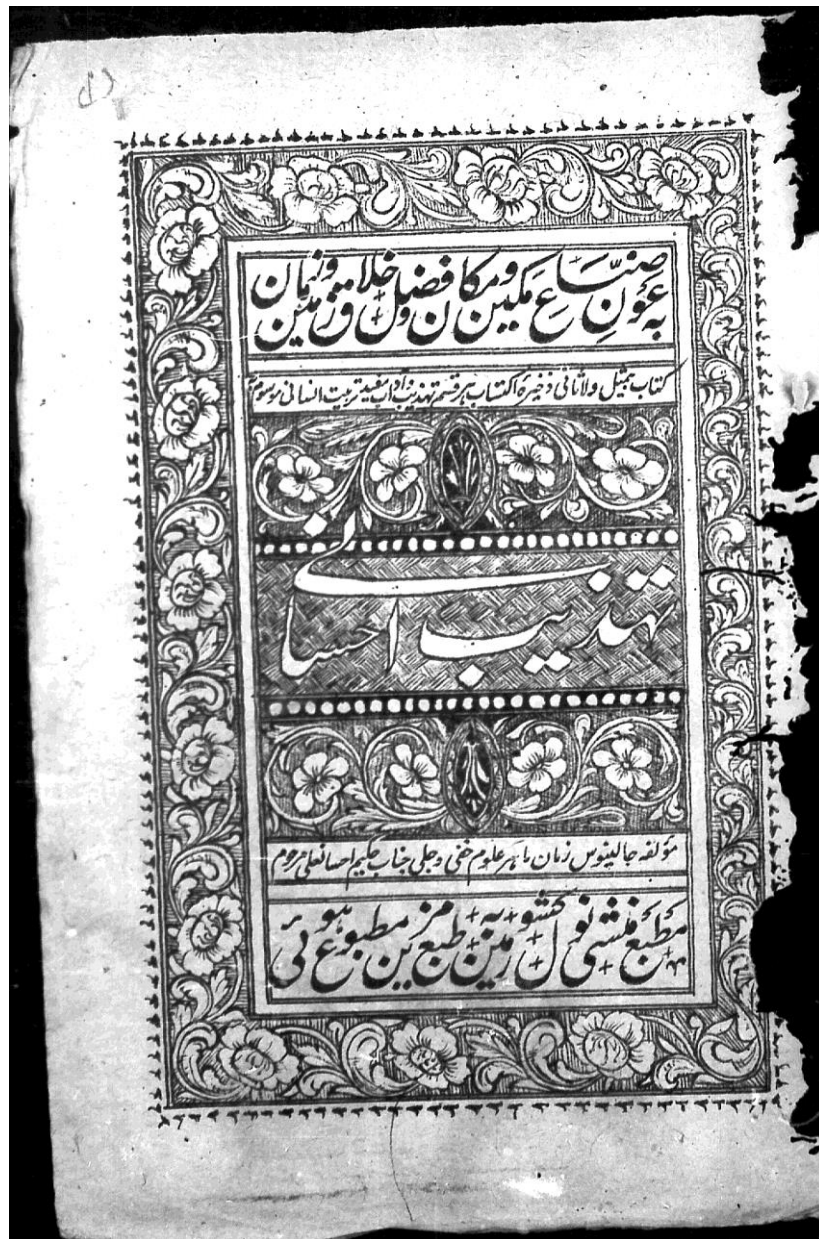 بہ عونِ صنّاعِ مکین و مکان و فضل خلاق زمین و زمان
کتاب بیمثیل و لاثانی ذخیرۂ اکتساب ہر قسم تہذیب و آداب مفید تربیت انسانی موسوم بہ
تہذیب احسانی
مؤلفہ جالینوس زمان ماہر علوم خفی و جلی جناب حکیم احسانعلی مرحوم
مطبع منشی نول کشور میں بہ طبع مزین مطبوع ہوئی